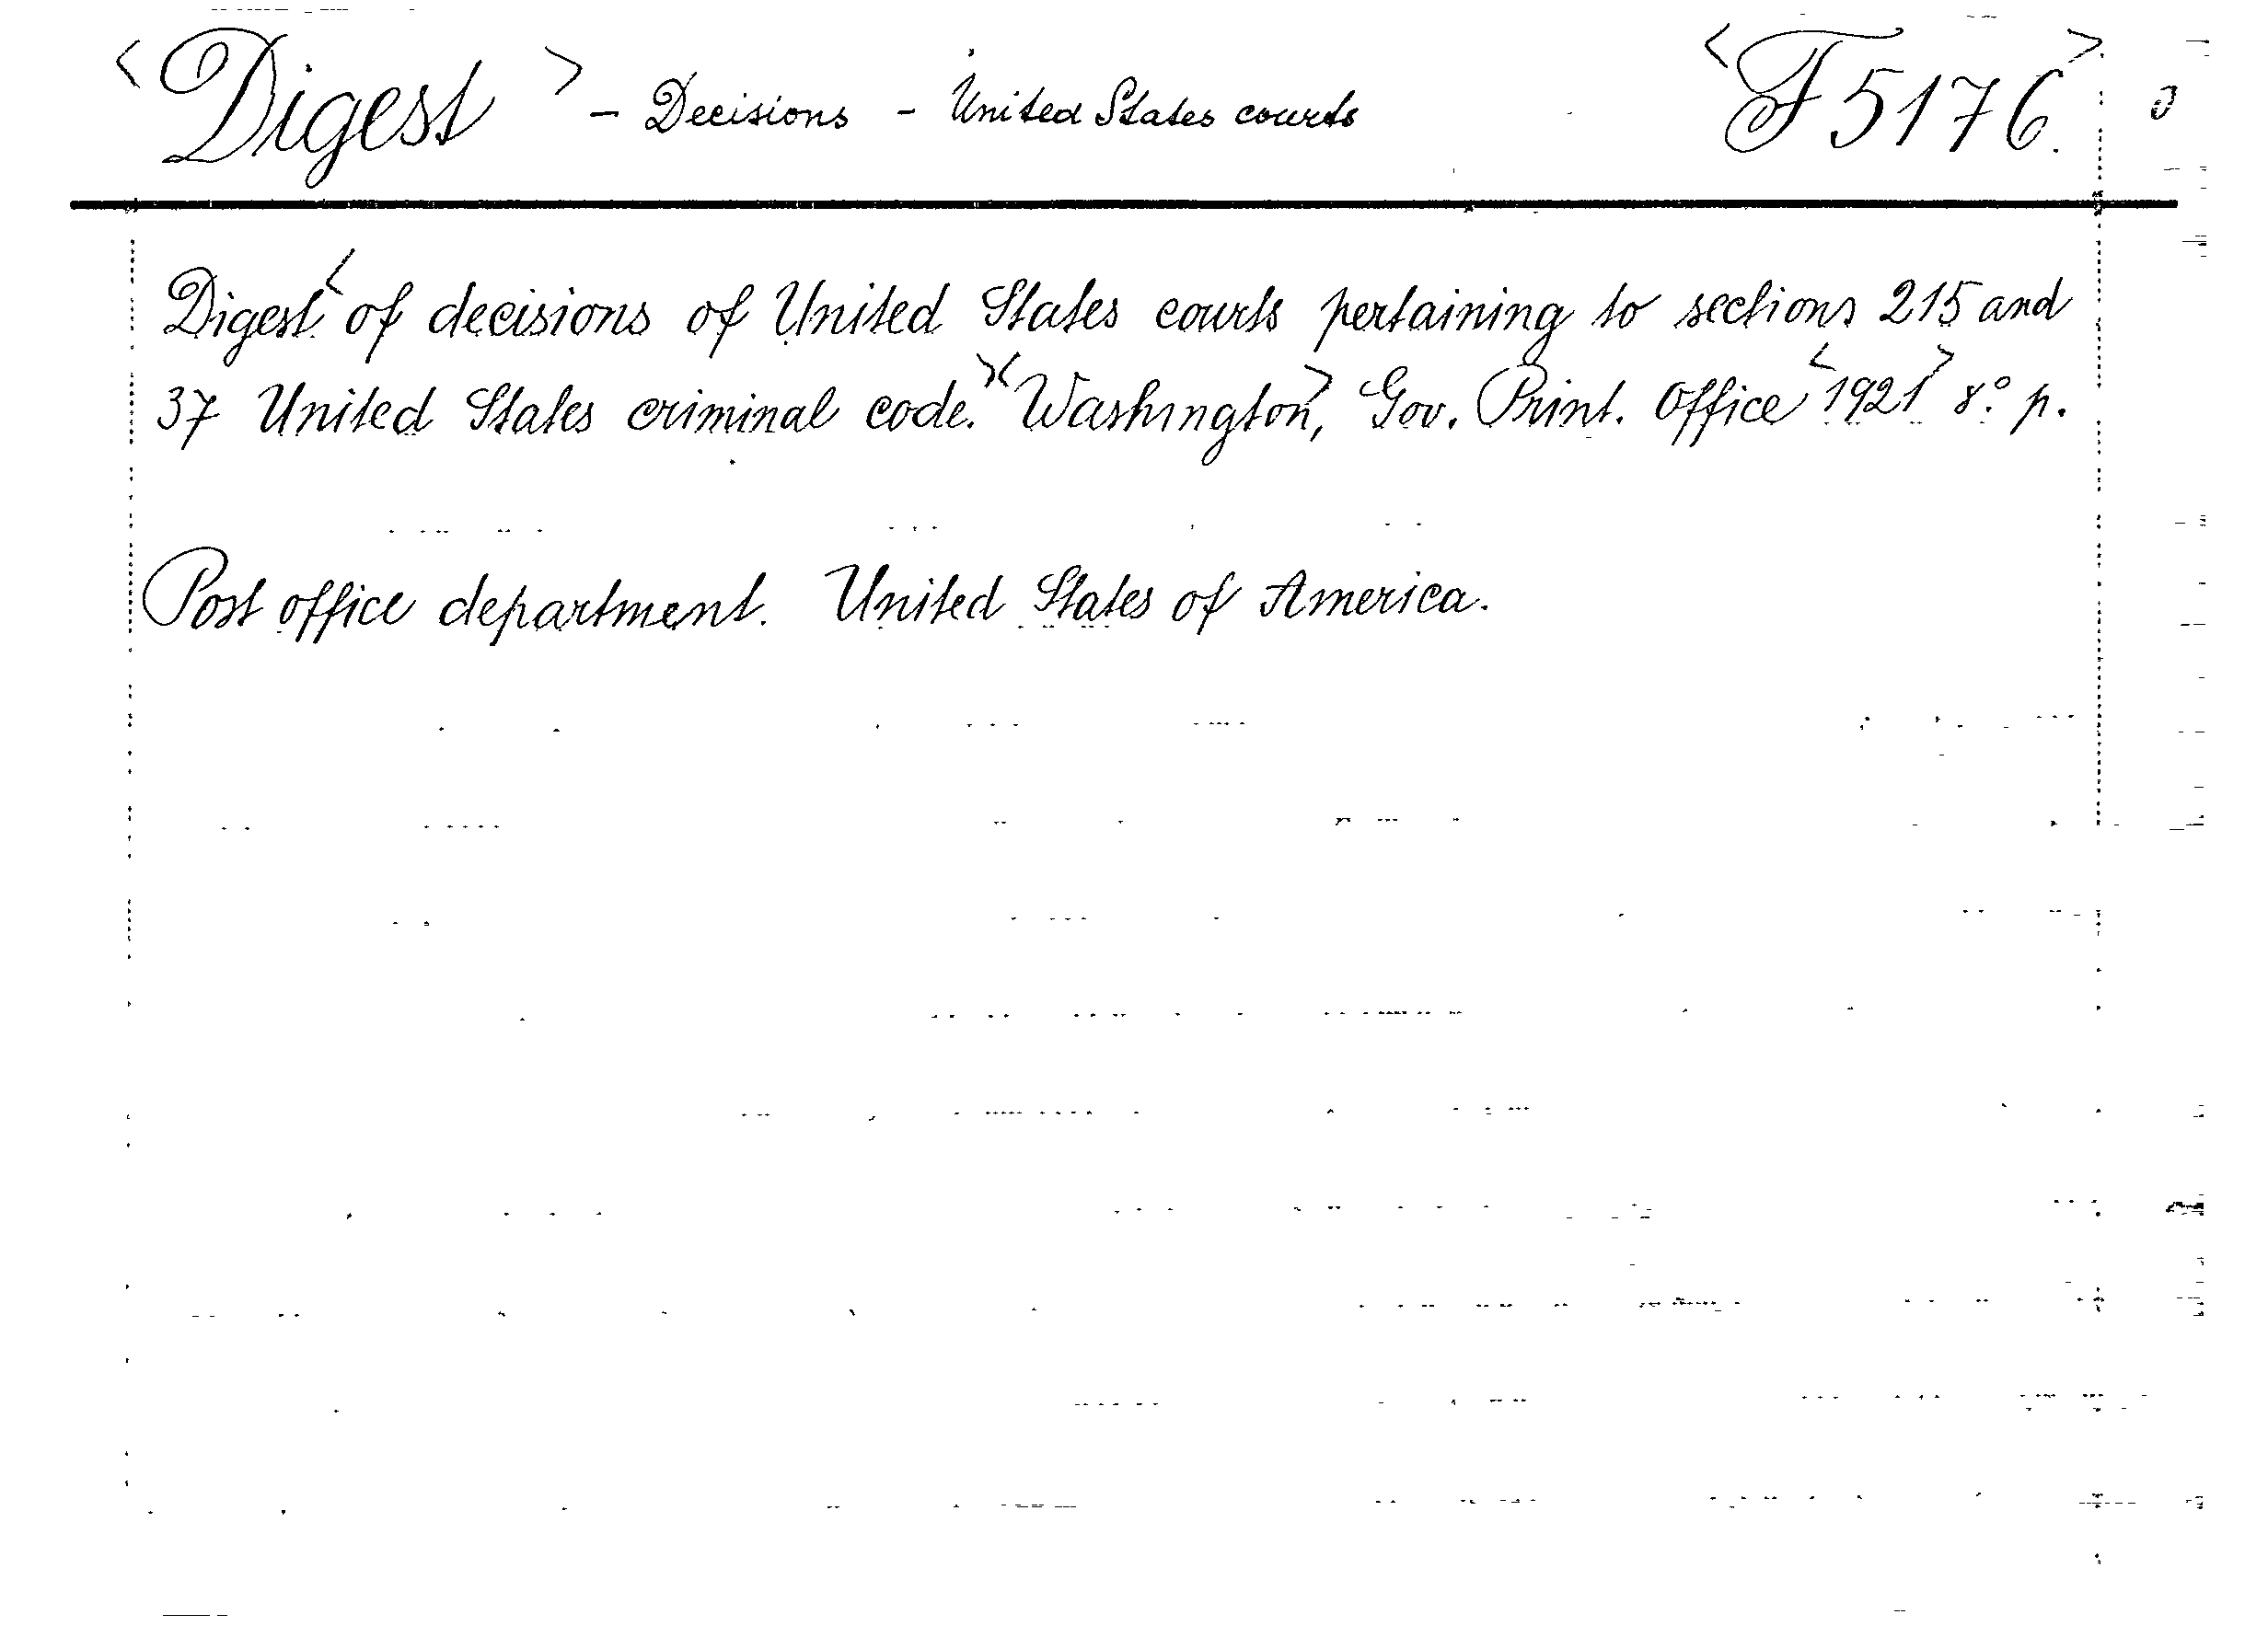 <Digest> - Decisions - United States courts <F5176.>
Digest <of decisions of United States courts pertaining to sections 215 and
37 United States criminal code.> <Washington>, Gov. Print. Office <1921> 8.° p.
Post office department. United States of America.